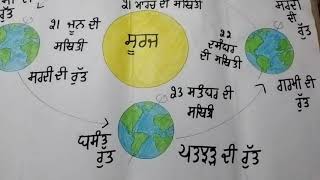 ਰੁੱਤ
21 ਮਾਰਚ ਦੀ
ਸਥਿਤੀ
21 ਜੂਨ ਦੀ
ਸਥਿਤੀ
ਸੂਰਜ
22
ਦਸੰਬਰ
ਦੀ ਸਥਿਤੀ
ਸਰਦੀ
ਦੀ
ਰੁੱਤ
ਸਰਦੀ ਦੀ ਰੁੱਤ
ਗਰਮੀ ਦੀ
ਰੁੱਤ
23 ਸਤੰਬਰ ਦੀ
ਸਥਿਤੀ
ਬਸੰਤ
ਰੁੱਤ
ਪਤਝੜ ਦੀ ਰੁੱਤ